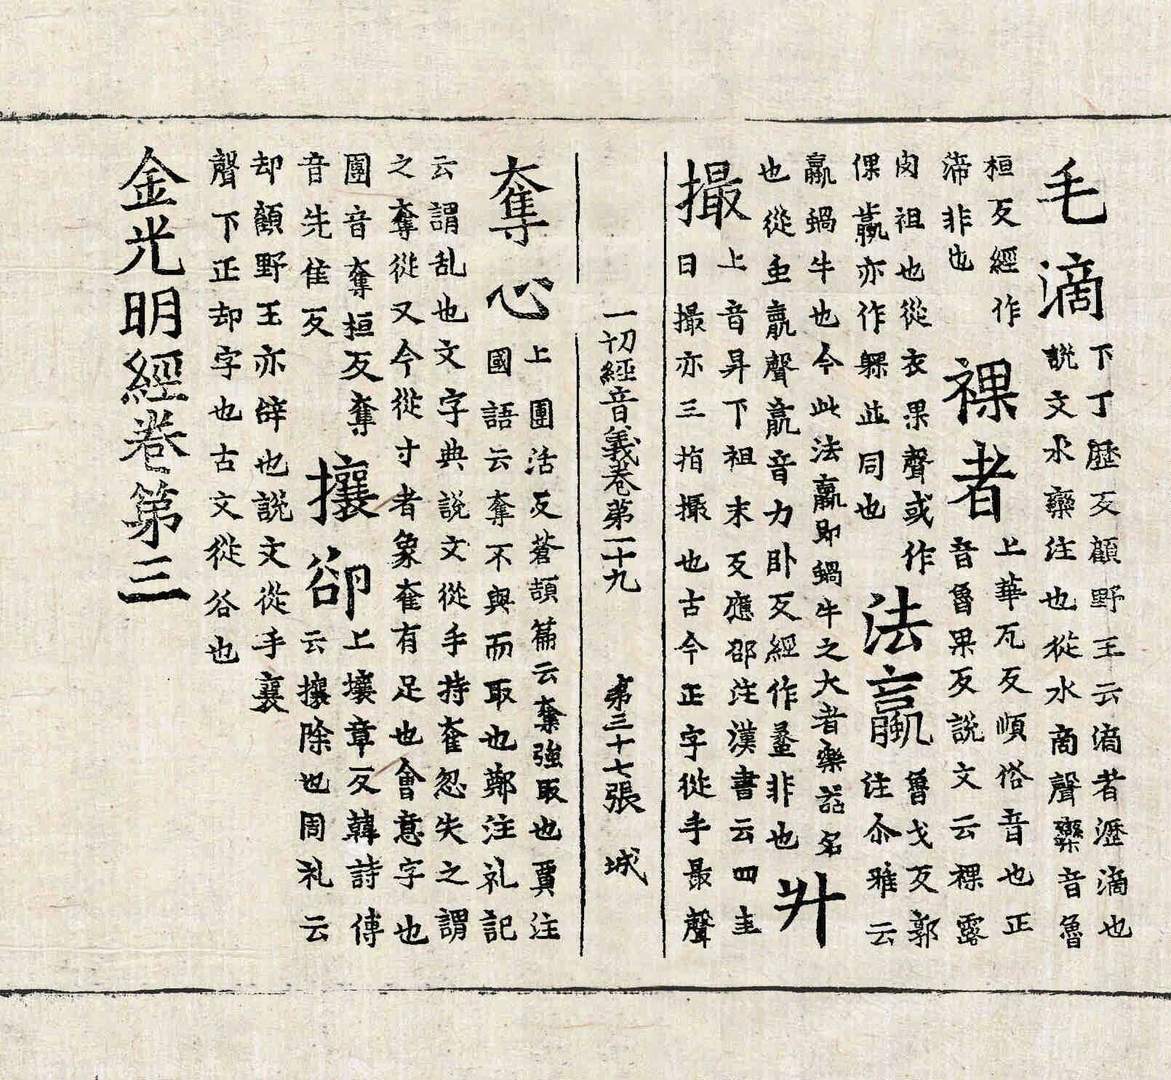 毛滴
下丁歷反顧野王云滴者瀝滴也
說文水欒注也從水啇聲欒音魯
桓反經作
渧非也
裸者
上華瓦反順俗音也正
音魯果反說文云裸露
肉袒也從衣果聲或作
倮臝亦作躶並同也
法蠃
魯戈反郭
注尒雅云
蠃蝸牛也今此法蠃即蝸牛之大者樂器名
也從虫𦝠聲𦝠音力卧反經作䗍非也
廾
撮
上音昇下祖末反應邵注漢書云四圭
曰撮亦三指撮也古今正字從手最聲
一切經音義卷第二十九 第三十七張 城
奪心
上團活反蒼頡篇云奪強取也賈注
國語云奪不與而取也鄭注礼記
云謂乱也文字典說文從手持奞忽失之謂
之奪從又今從寸者象奞有足也會意字也
團音奪桓反奪
音先隹反
攘卻
上壤章反韓詩傳
云攘除也周礼云
却顧野王亦辟也說文從手襄
聲下正却字也古文從谷也
金光明經卷第三